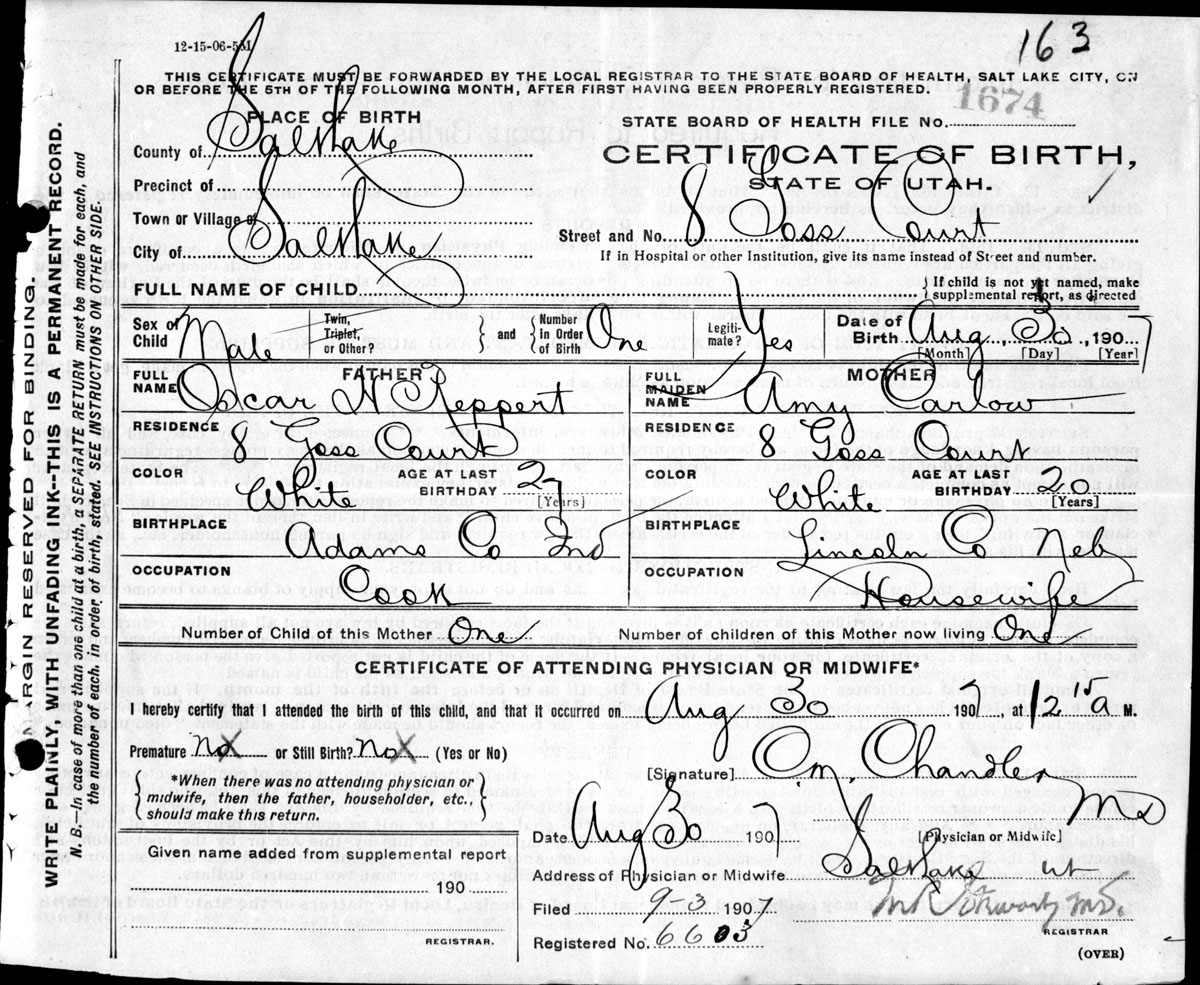 12-15-06-5M
163
THIS CERTIFICATE MUST BE FORWARDED BY THE LOCAL REGISTRAR TO THE STATE BOARD OF HEALTH, SALT LAKE CITY, ON
OR BEFORE THE 5TH OF THE FOLLOWING MONTH, AFTER FIRST HAVING BEEN PROPERLY REGISTERED.
1674
PLACE OF BIRTH
STATE BOARD OF HEALTH FILE No.
County of Salt Lake
CERTIFICATE OF BIRTH,
Precinct of
STATE OF UTAH.
Town or Village of
Street and No. 8 Goss Court
City of Salt Lake
If in Hospital or other Institution, give its name instead of Street and number.
FULL NAME OF CHILD
If child is not yet named, make
supplemental report, as directed
Sex of Child Male
Twin, Triplet, or Other?
and
Number in Order of Birth One
Legiti-mate? Yes
Date of Birth Aug 30, 1907
[Month] [Day] [Year]
FATHER
FULL NAME Oscar H Reppert
RESIDENCE 8 Goss Court
COLOR White
AGE AT LAST BIRTHDAY 27 [Years]
BIRTHPLACE Adams Co Ind
OCCUPATION Cook
MOTHER
FULL MAIDEN NAME Amy Carlow
RESIDENCE 8 Goss Court
COLOR White
AGE AT LAST BIRTHDAY 20 [Years]
BIRTHPLACE Lincoln Co Neb
OCCUPATION Housewife
Number of Child of this Mother One
Number of children of this Mother now living One
CERTIFICATE OF ATTENDING PHYSICIAN OR MIDWIFE*
I hereby certify that I attended the birth of this child, and that it occurred on Aug 30 190 , at 12 15 a M.
Premature No or Still Birth? No (Yes or No)
*When there was no attending physician or
midwife, then the father, householder, etc.,
should make this return.
[Signature] O M. Chandler
MD
[Physician or Midwife]
Date Aug 30 1907
Given name added from supplemental report
190
REGISTRAR.
Address of Physician or Midwife Salt Lake Ut
Filed 9-3 1907
Registered No. 6603
M.D.
REGISTRAR
(OVER)
MARGIN RESERVED FOR BINDING.
WRITE PAINLY, WITH UNFADING INK--THIS IS A PERMANENT RECORD.
N. B.--In case of more than one child at a birth, a SEPARATE RETURN must be made for each, and
the number of each, in order of birth, stated. SEE INSTRUCTIONS ON OTHER SIDE.